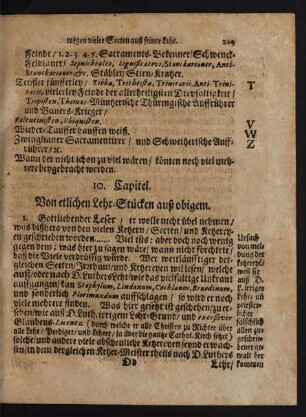 wegen vieler Secten auß seiner Lehr. 209
Feinde / 1. 2. 3. 4. 5. Sacraments-Bekenner / Schwenck-
Feldianer / Signisicatiui, Stanckarianer, Anti-
Stanckarianer, &c. Stäbler / Stirn-Kratzer.
Teufler fünfferley / Tritheistæ, Trinitarii, Anti-Trini-
tarii, vielerley Feinde der allerheiligsten Dreyfaltigkeit /
Tropisten, Thomas-Müntzerische Thüringische Auffrührer
und Bauers-Krieger /
Valentinisten, Vbiquisten,
Wieder-Tauffer hauffen weiß.
Zwinglianer Sacramentirer / und Schweitzerische Auff-
rührer / &c.
Wann der nicht schon zu viel wären / könten noch viel meh-
rere beygebracht werden.
T
V
W
Z
10. Capitel.
Von etlichen Lehr-Stücken auß obigem.
1. Gottliebender Leser / er wolle nicht übel nehmen /
was bißhero von den vielen Ketzern / Secten / und Ketzerey-
en geschrieben worden. Viel ists / aber doch noch wenig
gegen dem / was hier zu sagen wäre / wann nicht förchtete /
daß die Viele verdrüßig würde. Wer weitläuffiger der-
gleichen Secten / Irrthum / und Ketzereyen wil lesen / welche
auß D. Luthers Buchs-Lehr / wie das vielfaltige Unkraut
auffgangen / kan Staphylum, Lindanum, Cochlæum,
und sonderlich Florimundum auffschlagen / so wird er noch
viel mehrere finden. Was hier gesetzt ist geschehen / zu er-
sehen / wie auß D. Luth. irrigem Lohr-Grund / und
Glaubens-Licentz (durch welche er alle Christen zu Richter über
alle Lehr / Prediger / und Lehrer / ja über die gantze Cathol. Kirch setzet)
solche und so viele andere abscheuliche Ketzereyen seynd erwach-
sen / in dem dergleichen Ketzer-Meister theils nach D. Luthers
Ursach
von mel-
dung der
Ketzerey /
weil sie
auß D.
L. irrigen
Lehr / als
gleicher
falschlich
allen zu-
geschrie-
bener ge-
walt her
kommen
Dd Lehr /